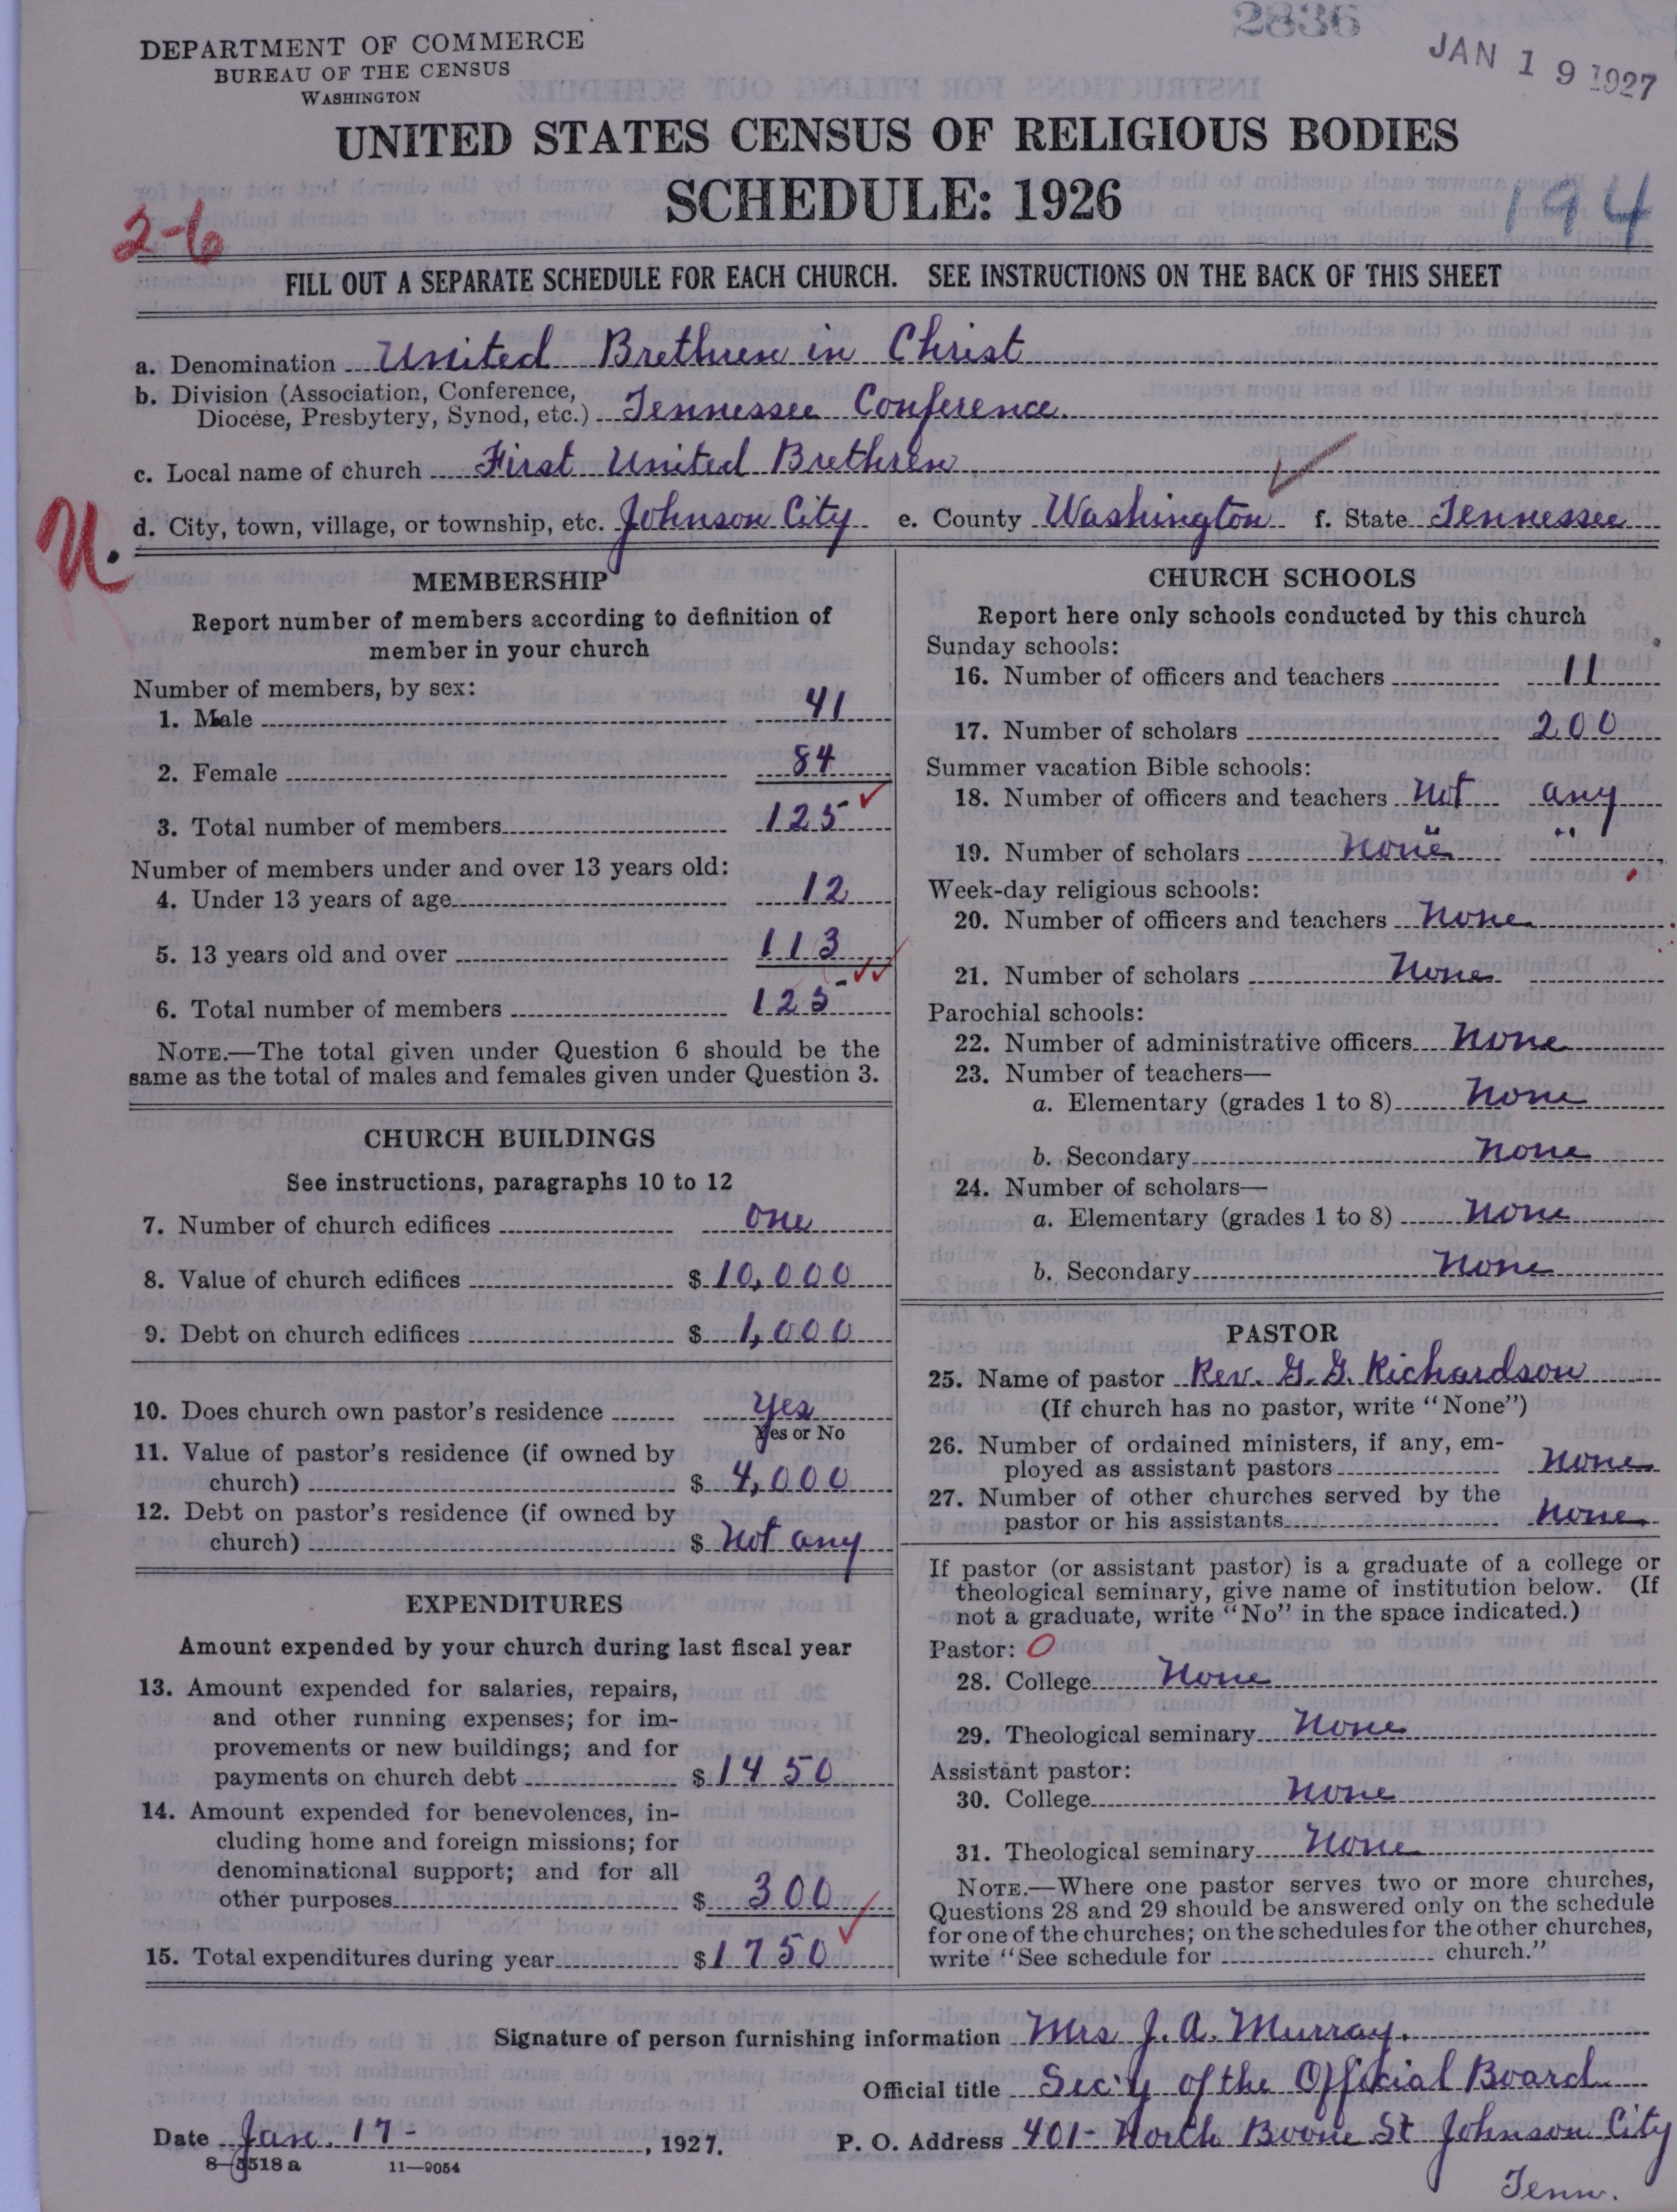 2836
JAN 19 1927
DEPARTMENT OF COMMERCE
BUREAU OF THE CENSUS
WASHINGTON
UNITED STATES CENSUS OF RELIGIOUS BODIES
SCHEDULE: 1926
194
2-6
FILL OUT A SEPARATE SCHEDULE FOR EACH CHURCH. SEE INSTRUCTIONS ON THE BACK OF THIS SHEET
a. Denomination United Brethren in Christ
b. Division (Association, Conference,
Diocese, Presbytery, Synod, etc.) Tennessee Conference.
c. Local name of church First United Brethren
U.
d. City, town, village, or township, etc. Johnson City e. County Washington f. State Tennessee
MEMBERSHIP
Report number of members according to definition of
member in your church
Number of members, by sex:
1. Male 41
2. Female 84
3. Total number of members 125
Number of members under and over 13 years old:
4. Under 13 years of age 12
5. 13 years old and over 113
6. Total number of members 125
NOTE.—The total given under Question 6 should be the
same as the total of males and females given under Question 3.
CHURCH BUILDINGS
See instructions, paragraphs 10 to 12
7. Number of church edifices one
8. Value of church edifices $ 10,000
9. Debt on church edifices $ 1,000
10. Does church own pastor's residence Yes
Yes or No
11. Value of pastor's residence (if owned by
church) $ 4,000
12. Debt on pastor's residence (if owned by
church) $ Not any
EXPENDITURES
Amount expended by your church during last fiscal year
13. Amount expended for salaries, repairs,
and other running expenses; for im-
provements or new buildings; and for
payments on church debt $ 1450
14. Amount expended for benevolences, in-
cluding home and foreign missions; for
denominational support; and for all
other purposes $ 300
15. Total expenditures during year $ 1750
CHURCH SCHOOLS
Report here only schools conducted by this church
Sunday schools:
16. Number of officers and teachers 11
17. Number of scholars 200
Summer vacation Bible schools:
18. Number of officers and teachers Not any
19. Number of scholars None " "
Week-day religious schools:
20. Number of officers and teachers None
21. Number of scholars None
Parochial schools:
22. Number of administrative officers None
23. Number of teachers—
a. Elementary (grades 1 to 8) None
b. Secondary None
24. Number of scholars—
a. Elementary (grades 1 to 8) None
b. Secondary None
PASTOR
25. Name of pastor Rev. G. G. Richardson
(If church has no pastor, write "None")
26. Number of ordained ministers, if any, em-
ployed as assistant pastors None
27. Number of other churches served by the
pastor or his assistants None
If pastor (or assistant pastor) is a graduate of a college or
theological seminary, give name of institution below. (If
not a graduate, write "No" in the space indicated.)
Pastor: 0
28. College None
29. Theological seminary None
Assistant pastor:
30. College None
31. Theological seminary None
NOTE.—Where one pastor serves two or more churches,
Questions 28 and 29 should be answered only on the schedule
for one of the churches; on the schedules for the other churches,
write "See schedule for church."
Signature of person furnishing information Mrs J. A. Murray.
Official title Sec'y of the Official Board
Date Jan. 17- , 1927. P. O. Address 401- North Boone St Johnson City
Tenn.
8—5518 a 11—9054